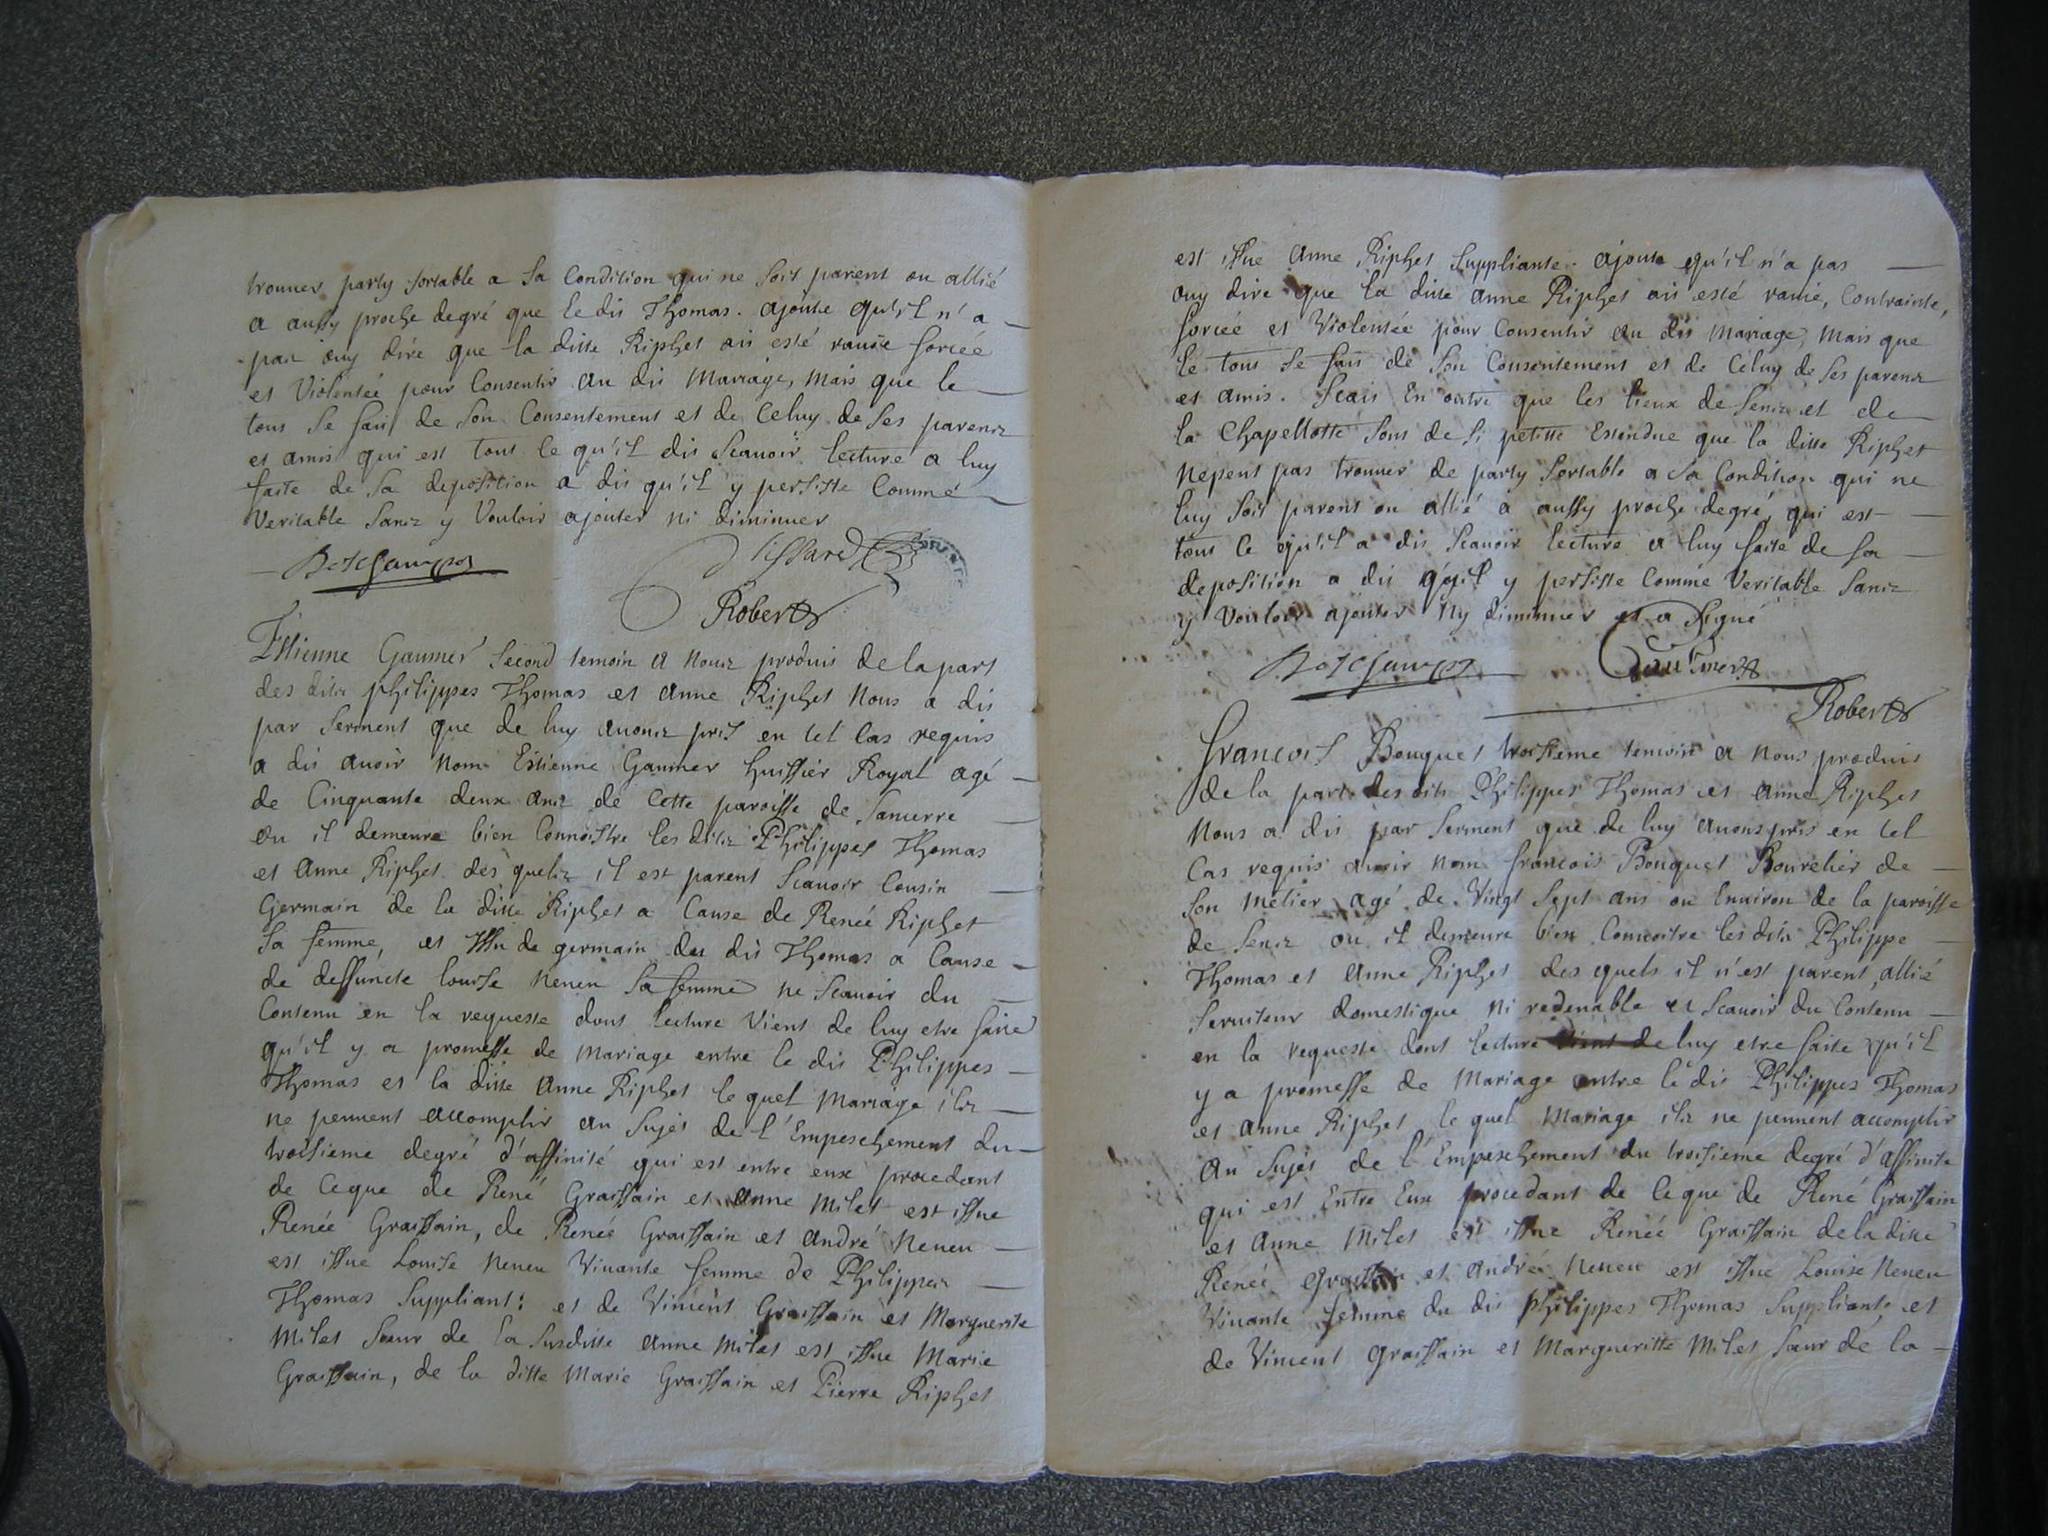 trouver party sortable a sa Condition qui ne soit parent ou allié
a aussy proche degré que le dit Thomas. ajoute qu'il n'a
pas ouy dire que la ditte Riphet ait esté ravie forcéé
et Violentéé pour Consentir au dit Mariage, Mais que le
tout se fait de son Consentement et de Celuy de ses parens
et amis qui est tout le qu'il dit Scavoir lecture a luy
faite de sa deposition a dit qu'il y persiste Comme
Veritable Sans y Vouloir ajouter ni diminuer
lissard
Robert
Etienne Gaumer Second temoin a Nous produit de la part
des dits philippes Thomas et Anne Riphet Nous a dit
par Serment que de luy avons pris en tel Cas requis
a dit avoir Nom Estienne Gaumer huissier Royal agé
de Cinquante deux ans de Cette paroisse de Sancerre
ou il demeure bien Connoistre les dits Philippes Thomas
et Anne Riphet des quels il est parent Scavoir Cousin
Germain de la ditte Riphet a Cause de Renéé Riphet
Sa femme, et Issu de germain du dit Thomas a Cause
de deffuncte Louise Neveu Sa femme ne Scavoir du
Contenu en la requeste dont lecture Vient de luy etre faite
qu'il y a promesse de Mariage entre le dit Philippes
Thomas et la ditte Anne Riphet le quel Mariage ils
ne peuvent accomplir au Sujet de l'Empeschement du
troisieme degré d'affinité qui est entre eux procedant
de Ceque de René Graissain et Anne Milet est issue
Renéé Graissain, de Renéé Graissain et André Neveu
est issue Louise Neveu Vivante femme de Philippes
Thomas Suppliant: et de Vincent Graissain et Marguerite
Milet Sœur de la Susditte Anne Milet est issue Marie
Graissain, de la ditte Marie Graissain et Pierre Riphet
est issue Anne Riphet Suppliante. ajoute qu'il n'a pas
ouy dire que la ditte Anne Riphet ait esté ravie, Contrainte,
forcéé et Violentéé pour Consentir au dit Mariage, Mais que
le tout se fait de Son Consentement et de Celuy de Ses parens
et amis. Scait En outre que les lieux de Sens et de
la Chapellotte Sont de Si petitte Estendue que la ditte Riphet
Nepeut pas trouver de party Sortable a Sa Condition qui ne
luy Soit parent ou allié a aussy proche degré, qui est
tout Ce qu'il a dit Scavoir lecture a luy faite de Sa
deposition a dit qu'il y persiste Comme Veritable Sans
y Vouloir ajouter Ny diminuer et a Signé
Gaumer
Robert
francois Bouquet troisieme temoin a Nous produit
de la part des dits Philippes Thomas et Anne Riphet
Nous a dit par Serment que de luy avons pris en tel
Cas requis avoir Nom francois Bouquet Bourelier de
Son Métier agé de Vingt Sept ans ou Environ de la paroisse
de Sens ou il demeure bien Connoitre les dits Philippe
Thomas et Anne Riphet des quels il n'est parent, allié
Serviteur domestique Ni redevable et Scavoir du Contenu
en la requeste dont lecture Vient de luy etre faite qu'il
y a promesse de Mariage entre le dit Philippes Thomas
et Anne Riphet le quel Mariage ils ne peuvent accomplir
au Sujet de l'Empeschement du troisieme degré d'affinité
qui est Entre Eux procedant de Ceque de René Graissain
et Anne Milet est issue Renéé Graissain de la ditte
Renéé Graissain et André Neveu est issue Louise Neveu
Vivante femme du dit philippes Thomas Suppliant, et
de Vincent Graissain et Margueritte Milet Sœur de la